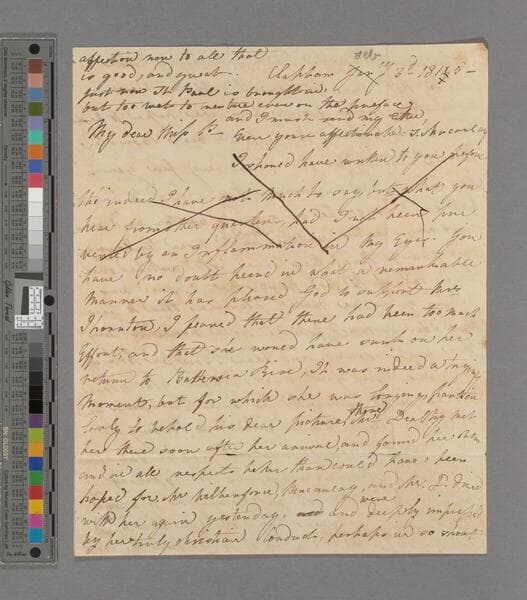 affection now to all that
is good, and great.
Clapham Jany 3d 1815 –
just now St Paul is brought in,
but too wet to venture even on the preface,
and I must send my letter,
My dear Miss
Ever yours affectionate S. Macaulay
I should have written to you before
tho' indeed I have not much to say but what you
hear from other quarters, had I not been pre
vented by an Inflammation in my Eyes. You
have no doubt heard in what a remarkable
manner it has pleased God to support Mrs
Thornton, I feared that there had been too much
Effort, and that she would have sunk on her
return to Battersea Rise, It was indeed a trying
Moment, but for which she was longing, partic
larly to behold his dear picture, there Mrs Dealtry met
her there soon after her arrival, and found her
and in all respects better than could have been
hoped for, Mr Wilberforce, Macaulay, and Mr. dined
with her again yesterday, and were deeply impress'd
by her truly christian conduct, perhaps in so